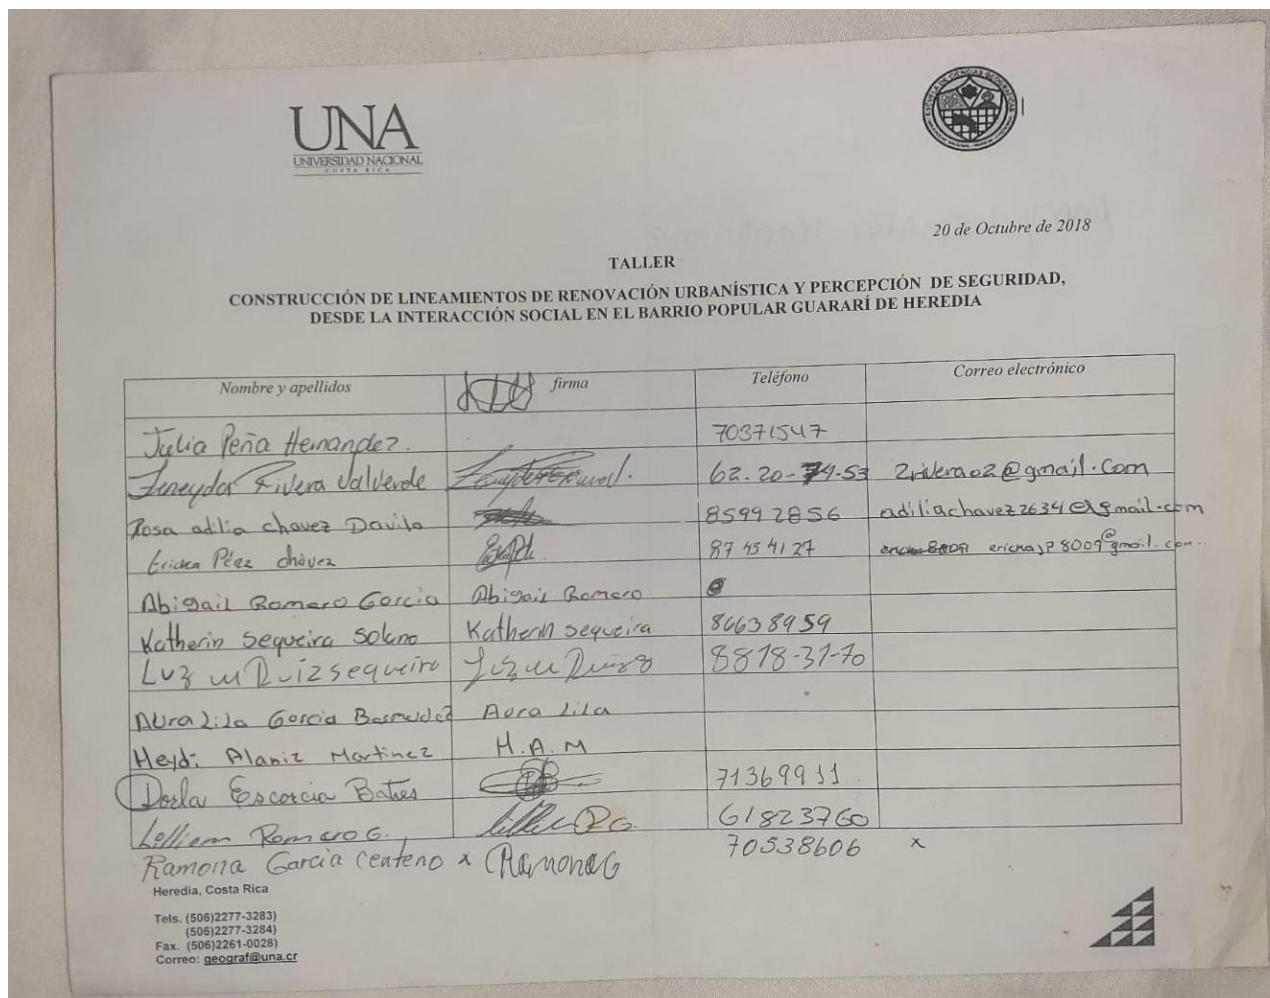 UNA
UNIVERSIDAD NACIONAL
COSTA RICA
20 de Octubre de 2018
TALLER
CONSTRUCCIÓN DE LINEAMIENTOS DE RENOVACIÓN URBANÍSTICA Y PERCEPCIÓN DE SEGURIDAD,
DESDE LA INTERACCIÓN SOCIAL EN EL BARRIO POPULAR GUARARÍ DE HEREDIA
Nombre y apellidos firma Teléfono Correo electrónico
Julia Peña Hernandez. 70371547
Rivera Valverde 62-20-74-53 zrivera02@gmail.com
Rosa adilia chavez Davila 85992856 adiliachavez2634@gmail.com
Ericka chávez 87454127 gmail.com
Abigail Romero Garcia Abigail Romero
Katherin Sequeira Solano Katherin Sequeira 86638959
Luz M Ruiz sequeira Luz M Ruiz 8818-31-70
Aura Lila Garcia Aura Lila
Heydi Alaniz Martinez H.A.M
Escorcia Batres 71369911
Romero G. 61823760
Ramona Garcia Centeno x Ramona G 70538606 x
Heredia, Costa Rica
Tels. (506)2277-3283)
(506)2277-3284)
Fax. (506)2261-0028)
Correo: geograf@una.cr